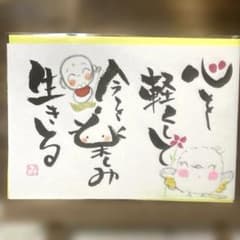 心を
軽くして
今を楽しみ
生きる
み